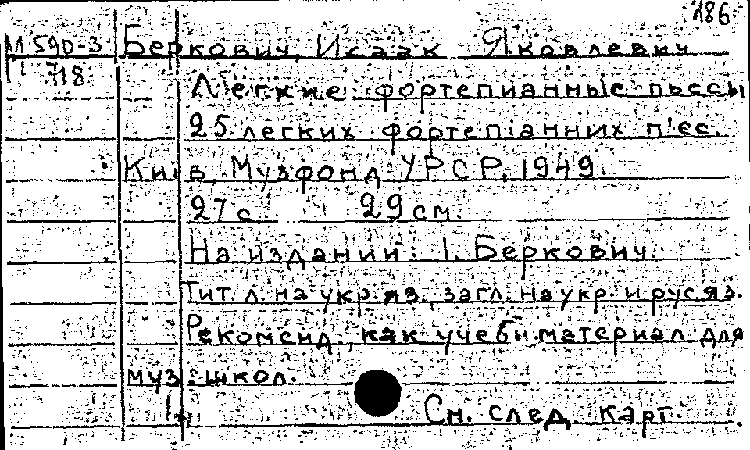 186
М 590-3 Беркович, Исаак Яковлевич
718
Легкие фортепианные пьесы
25 легких фортепіанних п'єс.
Київ, Музфонд УРСР, 1949.
27 с. 29 см.
На издании: І. Беркович.
Тит. л. на укр. яз., загл. на укр. и рус. яз.
Рекоменд., как учебн. материал для
муз. школ.
См. след. карт.